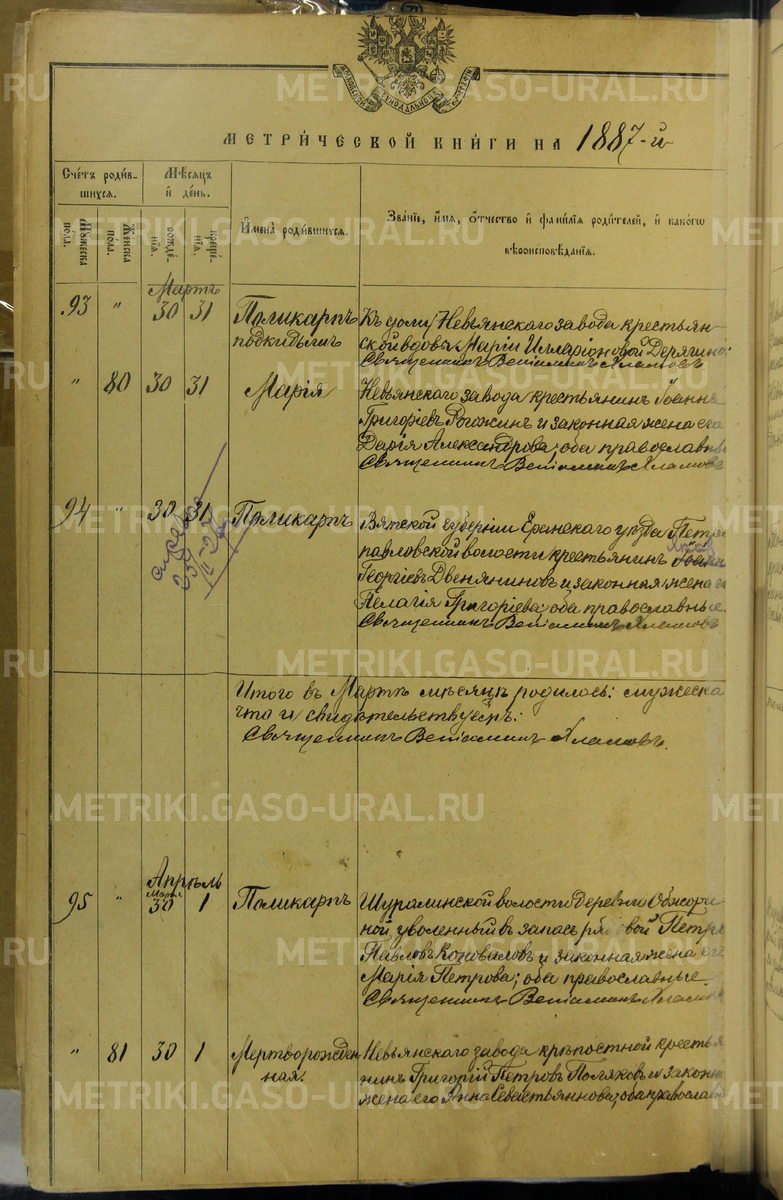 МОСКОВСКОЙ СИНОДАЛЬНОЙ ТИПОГРАФІИ
МЕТРИ́ЧЕСКОЙ КНИ́ГИ НА 1887-й
Счётъ роди́в-
шихся.
Мѣсяцъ
и де́нь.
И҆мена̀ роди́вшихся.
Зва́нїе, и҆́мѧ, ѻ҆́тчество и҆ фамѝлїѧ роди́телей, и҆ како́гѡ
вѣроисповѣ́данїѧ.
Му́жеска
по́ла.
Же́нска
по́ла.
рожде́-
нїѧ.
креще́-
нїѧ.
Мартъ
93 " 30 31 Поликарпъ
подкидышъ
Къ дому Невьянскаго завода крестьян-
ской вдовы Маріи Илларіоновой Дерягино
Священникъ Веніаминъ Хламовъ
" 80 30 31 Марія
Невьянскаго завода крестьянинъ Іоаннъ
Григоріевъ Рогожинъ и законная жена его
Дарія Александрова; оба православные
Священникъ Веніаминъ Хламовъ
94 " 30 31 Поликарпъ
Вятской губерніи Уѣзда Петро
павловской волости крестьянинъ
Георгіевъ Двеняниновъ и законная жена
Пелагія Григоріева; оба православные.
Священникъ Веніаминъ Хламовъ
Итого въ Мартѣ мѣсяцѣ родилось: мужеска
что и свидѣтельствуемъ:
Священникъ Веніаминъ Хламовъ.
Апрѣль
Марта
95 " 30 1 Поликарпъ
Шуралинской волости деревни
ной уволенный въ запасъ рядовой Петръ
Павловъ Коноваловъ и законная жена его
Марія Петрова; оба православные.
Священникъ Веніаминъ Хламовъ
" 81 30 1 Мертворожден
ная.
Невьянскаго завода крѣпостной крестья
нинъ Григорій Петровъ Поляковъ и законн
жена его Анна Севастьяннова; оба православн
METRIKI.GASO-URAL.RU